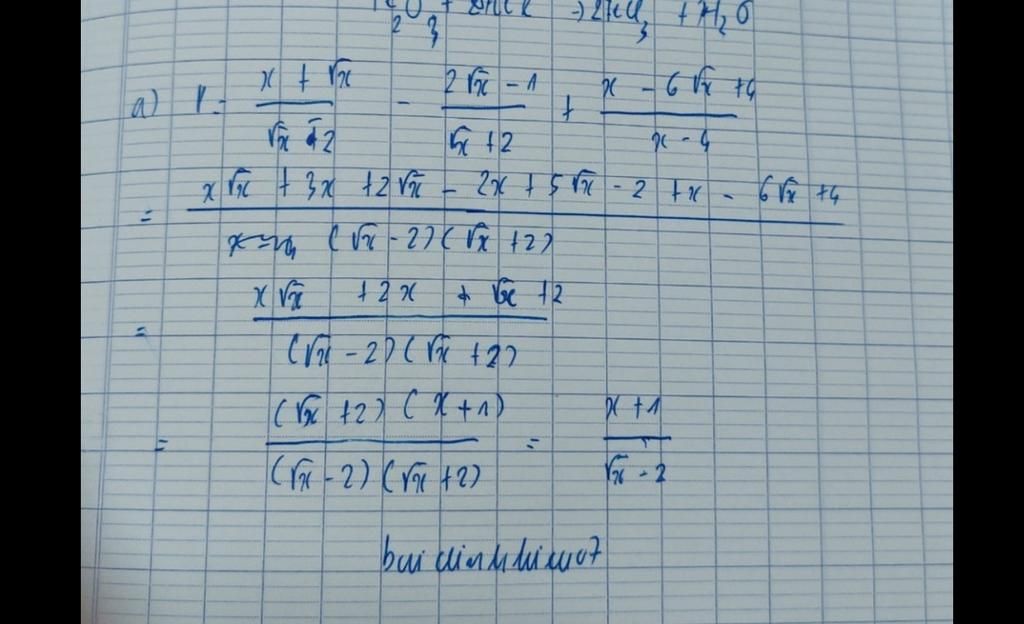 2O3 + HCl → 2FeCl3 + H2O
a) P = (x + √x)/(√x - 2) - (2√x - 1)/(√x + 2) + (x - 6√x + 4)/(x - 4)
= (x√x + 3x + 2√x - 2x + 5√x - 2 + x - 6√x + 4)/((√x - 2)(√x + 2))
= (x√x + 2x + √x + 2)/((√x - 2)(√x + 2))
= ((√x + 2)(x + 1))/((√x - 2)(√x + 2)) = (x + 1)/(√x - 2)